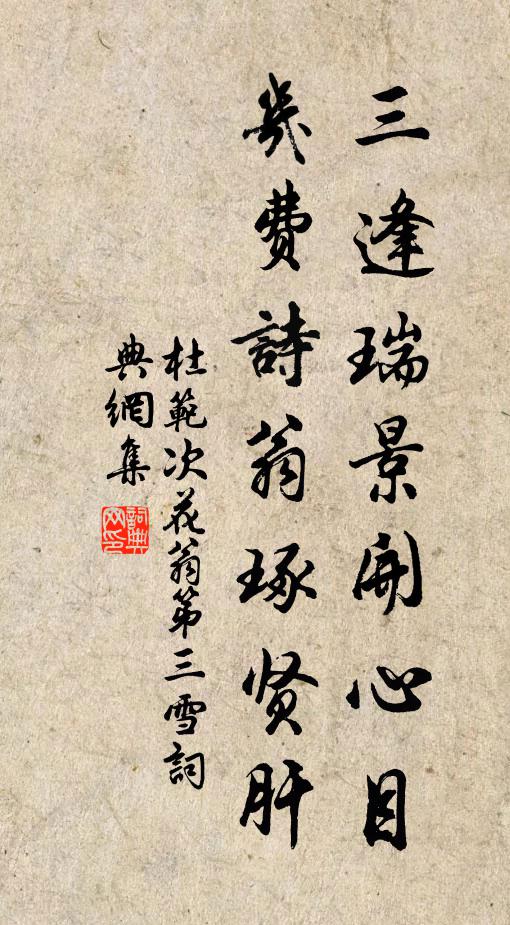 三逢瑞景開心目
幾費詩翁琢贤肝
杜範次花翁第三雪詞
典網集
詞典網印